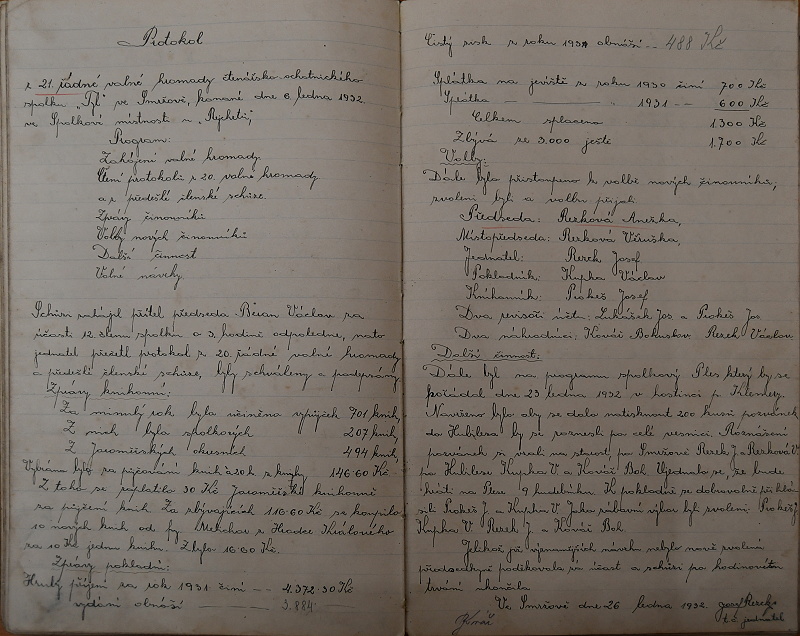 Protokol
z 21. řádné valné hromady čtenářsko-ochotnického
spolku „Tyl" ve Smržově, konané dne 6. ledna 1932.
ve Spolkové místnosti u „Rejchrtů",
Program:
Zahájení valné hromady.
Čtení protokolů z 20. valné hromady
a z předešlé členské schůze.
Zprávy činovníků
Volby nových činovníků
Další činnost
Volné návrhy.
Schůzi zahájil přítel předseda Beran Václav za
účasti 12 členů spolku o 3. hodině odpoledne, nato
jednatel přečetl protokol z 20. řádné valné hromady
a předešlé členské schůze, byly schváleny a podepsány.
Zprávy knihovní:
Za minulý rok byla učiněna výpůjček 701 knih,
Z nich bylo spolkových 207 knih,
Z Jaroměřských okresních 494 knih,
Vybráno bylo za půjčování knih à 20 h z knihy 146·60 Kč.
Z toho se zaplatilo 30 Kč Jaroměřské knihovně
za půjčení knih. Za zbývajících 116·60 Kč se koupilo
10 nových knih od fy. z Hradce Králového
za 10 Kč jednu knihu. Zbylo 16·60 Kč.
Zprávy pokladní:
Hrubý příjem za rok 1931 činí -- 4.372·30 Kč
vydání obnáší 3.884
Čistý zisk z roku 1931 obnáší -- 488 Kč
Splátka na jeviště z roku 1930 činí 700 Kč
Splátka — " — 1931 -- 600 Kč
Celkem splaceno 1.300 Kč
Zbývá ze 3.000 ještě 1.700 Kč
Volby:
Dále bylo přistoupeno k volbě nových činovníků,
zvoleni byli a volbu přijali.
Předseda: Rezková Anežka,
Místopředseda: Rezková Věruška,
Jednatel: Rezek Josef
Pokladník: Kupka Václav
Knihovník: Prokeš Josef
Dva revisoři účtů: Lukášek Jos. a Prokeš Jos.
Dva náhradníci: Kovář Bohuslav Rezek Václav
Další činnost:
Dále byl na programu spolkový Ples který by se
pořádal dne 23 ledna 1932 v hostinci p. Klemety.
Navrženo bylo aby se dalo natisknout 200 kusů pozvánek
do Hubilesa by se roznesli po celé vesnici. Roznášení
pozvánek si vzali na starost, po Smržově Rezek J. a Rezková V.
po Hubilese Kupka V. a Kovář Boh. Ujednalo se, že bude
hráti na Plese 9 hudebníků. K pokladně se dobrovolně přihlá-
sili Prokeš J. a Kupka V. Jako zábavní výbor byli zvoleni. Prokeš J.
Kupka V. Rezek J. a Kovář Boh.
Jelikož již významnějších návrhů nebylo nově zvolená
předsedkyně poděkovala za účast a schůzi po hodinovém
trvání ukončila
Ve Smržově dne 26 ledna 1932. Josef Rezek
t. č. jednatel